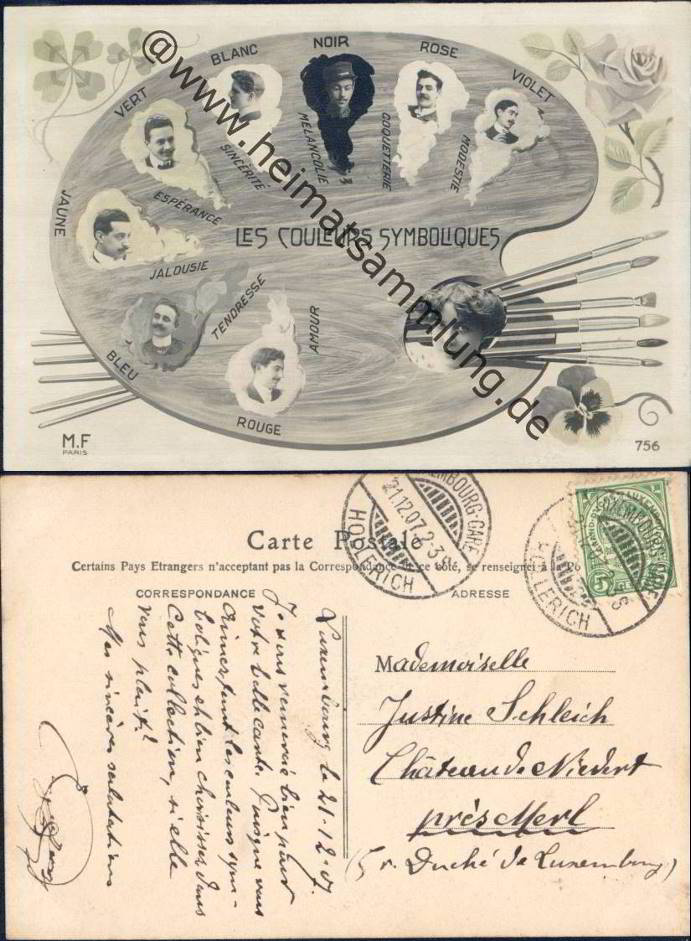 BLANC
NOIR
ROSE
VIOLET
VERT
JAUNE
BLEU
ROUGE
SINCÉRITÉ
MÉLANCOLIE
COQUETTERIE
MODESTIE
ESPÉRANCE
JALOUSIE
TENDRESSE
AMOUR
LES COULEURS SYMBOLIQUES
M.F
PARIS
756
@www.heimatsammlung.de
Carte Postale
Certains Pays Etrangers n'acceptant pas la Correspondance de ce côté, se renseigner à la Po
CORRESPONDANCE
ADRESSE
LUXEMBOURG-GARE
21.12.07.2-3S
HOLLERICH
LUXEMBOURG-GARE
HOLLERICH
5
Luxembourg le 21-12-07.
Je vous remercie bien pour
votre belle carte. Puisque vous
aimez tant les couleurs sym-
boliques et bien choisissez dans
Cette collection, si elle
vous plait!
Mes sincères salutations
Mademoiselle
Justine Schleich
Château de Niedert
près Merl
(Gr. Duché de Luxembourg)